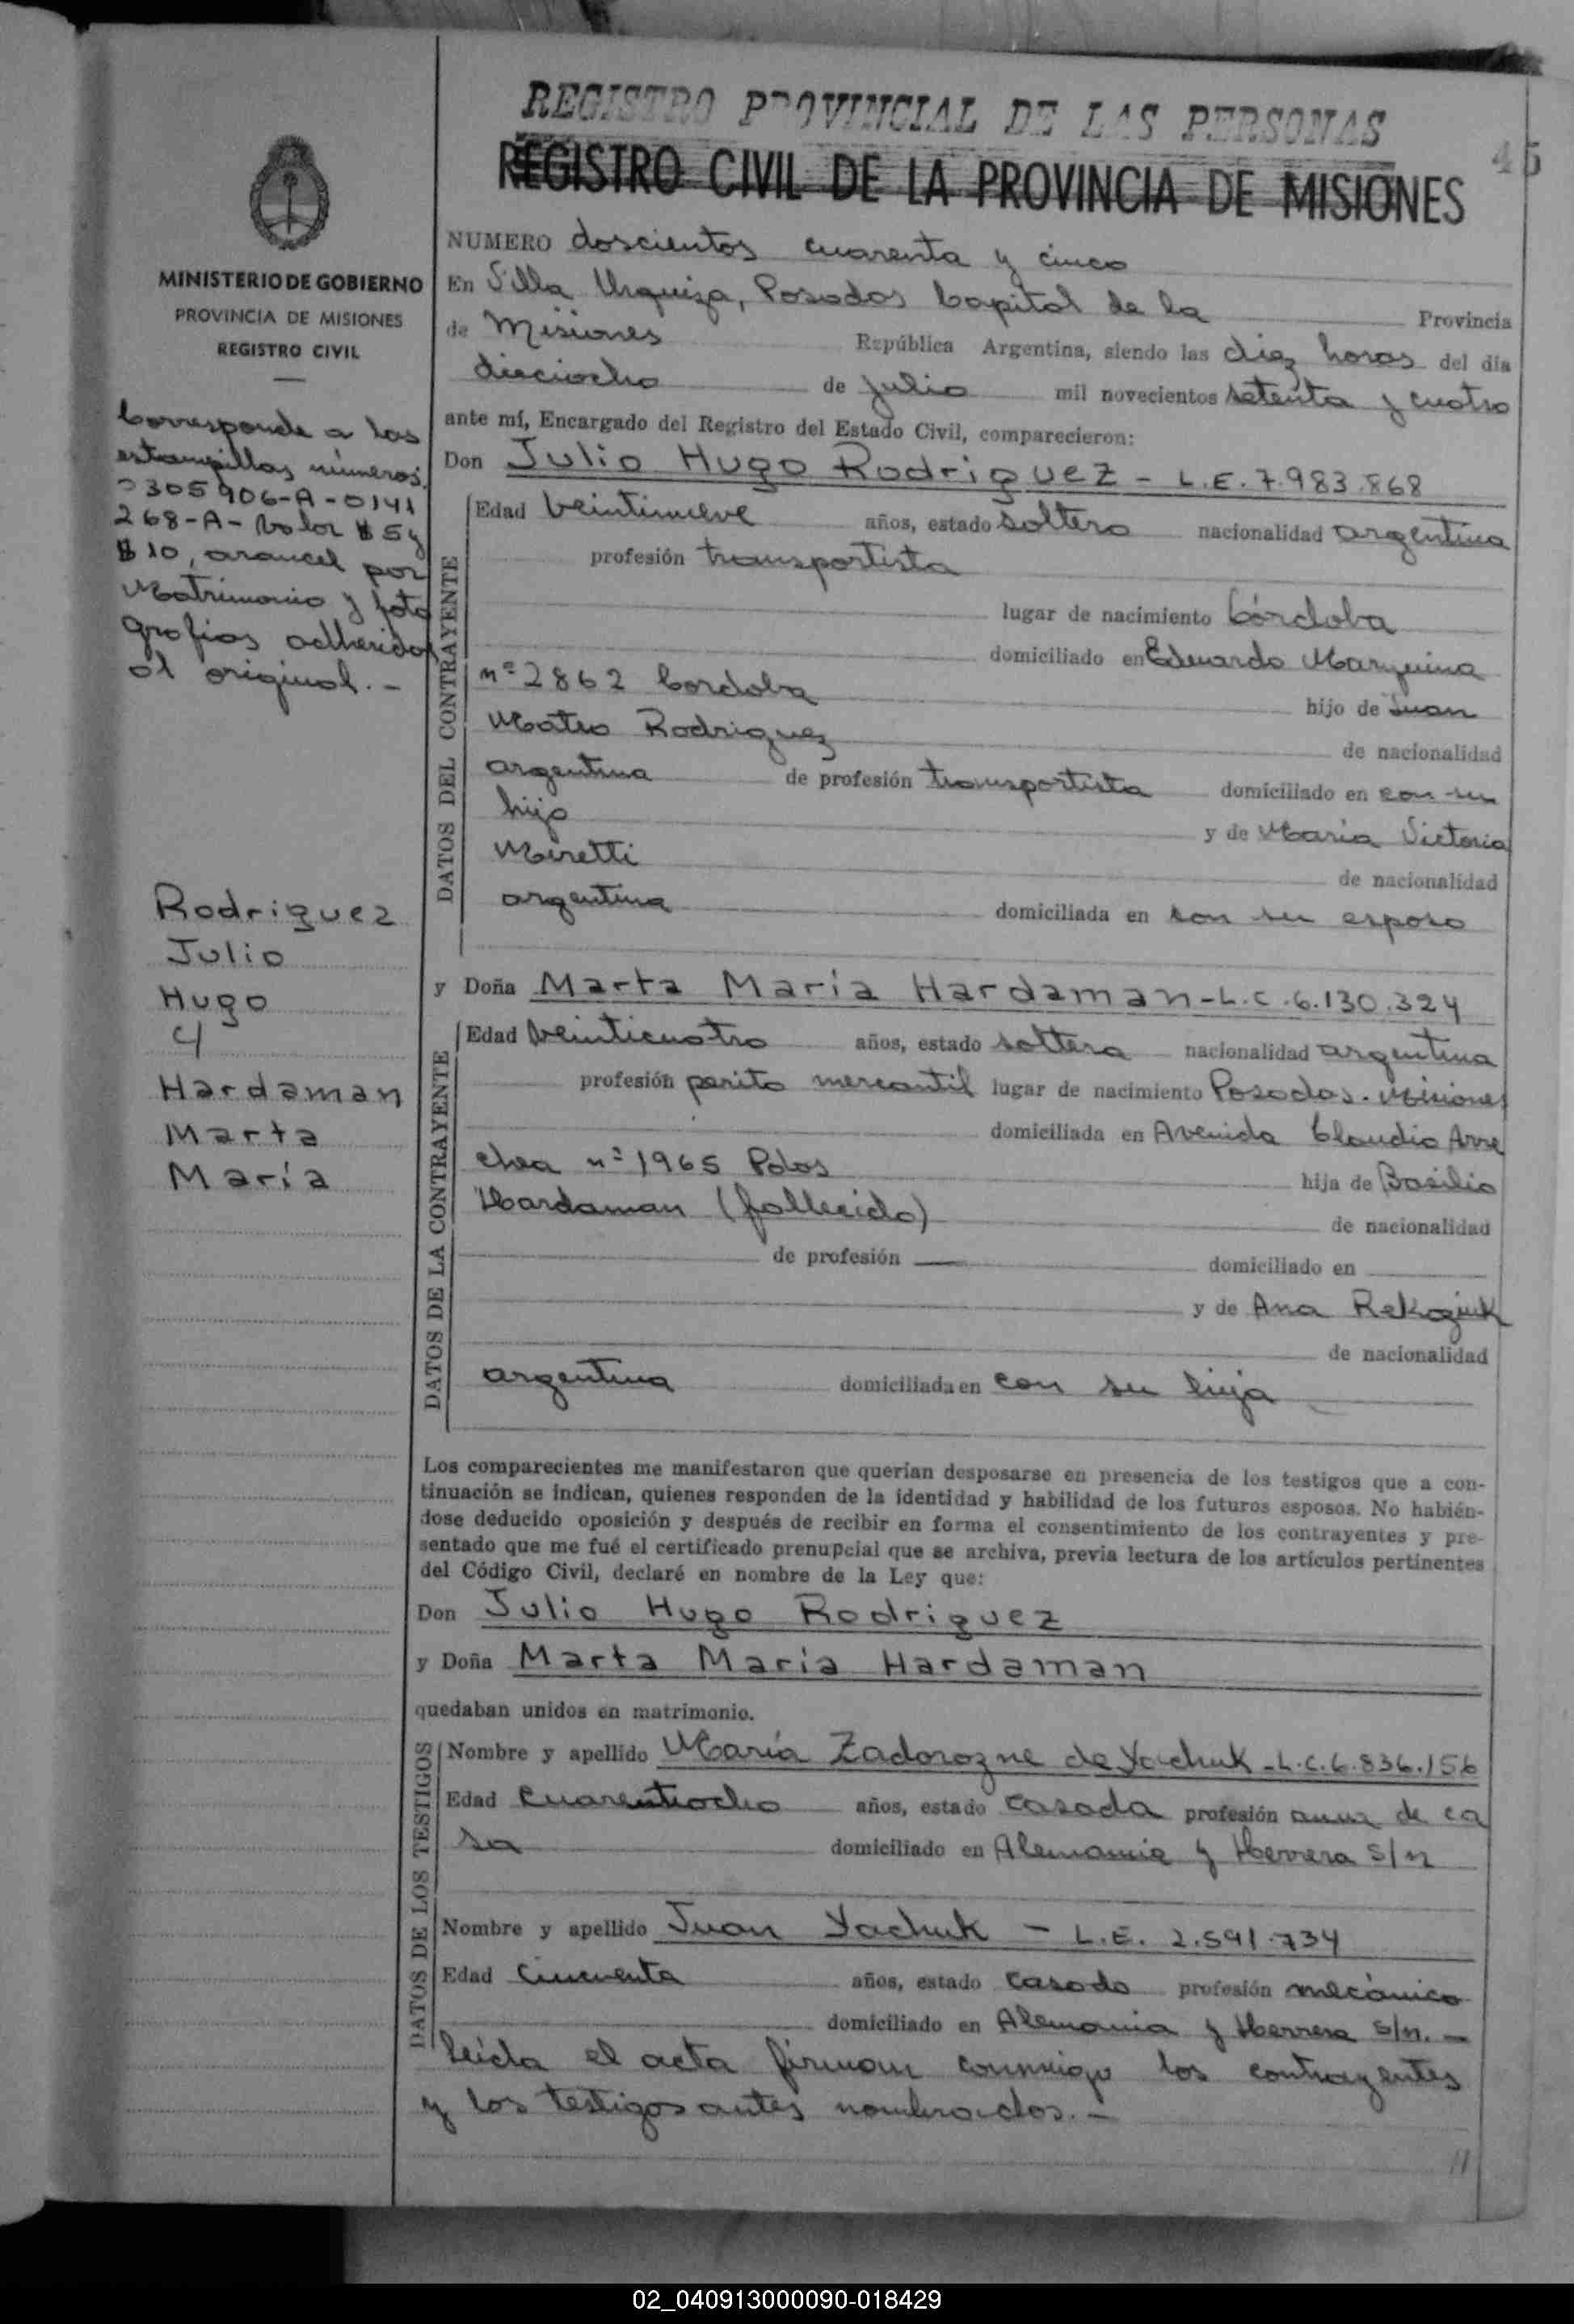 REGISTRO PROVINCIAL DE LAS PERSONAS
REGISTRO CIVIL DE LA PROVINCIA DE MISIONES
45
MINISTERIO DE GOBIERNO
PROVINCIA DE MISIONES
REGISTRO CIVIL
Corresponde a las
estampillas números:
0305906-A-0141
268-A- Valor $ 5 y
$ 10, arancel por
Matrimonio y foto
grafias adheridas
al original.-
Rodriguez
Julio
Hugo
c/
Hardaman
Marta
María
NUMERO doscientos cuarenta y cinco
En Villa Urquiza, Posadas Capital de la Provincia
de Misiones República Argentina, siendo las diez horas del día
dieciocho de julio mil novecientos setenta y cuatro
ante mí, Encargado del Registro del Estado Civil, comparecieron:
Don Julio Hugo Rodriguez - L.E. 7.983.868
DATOS DEL CONTRAYENTE
Edad veintinueve años, estado soltero nacionalidad argentina
profesión transportista
lugar de nacimiento Córdoba
domiciliado en Eduardo Marquina
nº 2862 Cordoba hijo de Juan
Mateo Rodriguez de nacionalidad
argentina de profesión transportista domiciliado en con su
hijo y de María Victoria
Miretti de nacionalidad
argentina domiciliada en con su esposo
y Doña Marta María Hardaman-L.C.6.130.324
DATOS DE LA CONTRAYENTE
Edad veinticuatro años, estado soltera nacionalidad argentina
profesión perito mercantil lugar de nacimiento Posadas. Misiones
domiciliada en Avenida Claudio Arre
chea nº 1965 Pdas hija de Basilio
Hardaman (fallecido) de nacionalidad
de profesión domiciliado en
y de Ana
de nacionalidad
argentina domiciliada en con su hija
Los comparecientes me manifestaron que querían desposarse en presencia de los testigos que a con-
tinuación se indican, quienes responden de la identidad y habilidad de los futuros esposos. No habién-
dose deducido oposición y después de recibir en forma el consentimiento de los contrayentes y pre-
sentado que me fué el certificado prenupcial que se archiva, previa lectura de los artículos pertinentes
del Código Civil, declaré en nombre de la Ley que:
Don Julio Hugo Rodriguez
y Doña Marta María Hardaman
quedaban unidos en matrimonio.
DATOS DE LOS TESTIGOS
Nombre y apellido María Zadorozne de Yachuk-L.C.6.836.156
Edad cuarentiocho años, estado casada profesión ama de ca
sa domiciliado en Alemania y Herrera s/n
Nombre y apellido Juan Yachuk - L.E. 2.591.734
Edad cincuenta años, estado casado profesión mecánico
domiciliado en Alemania y Herrera s/n.-
leída el acta firman conmigo los contrayentes
y los testigos antes nombrados.-
02_040913000090-018429